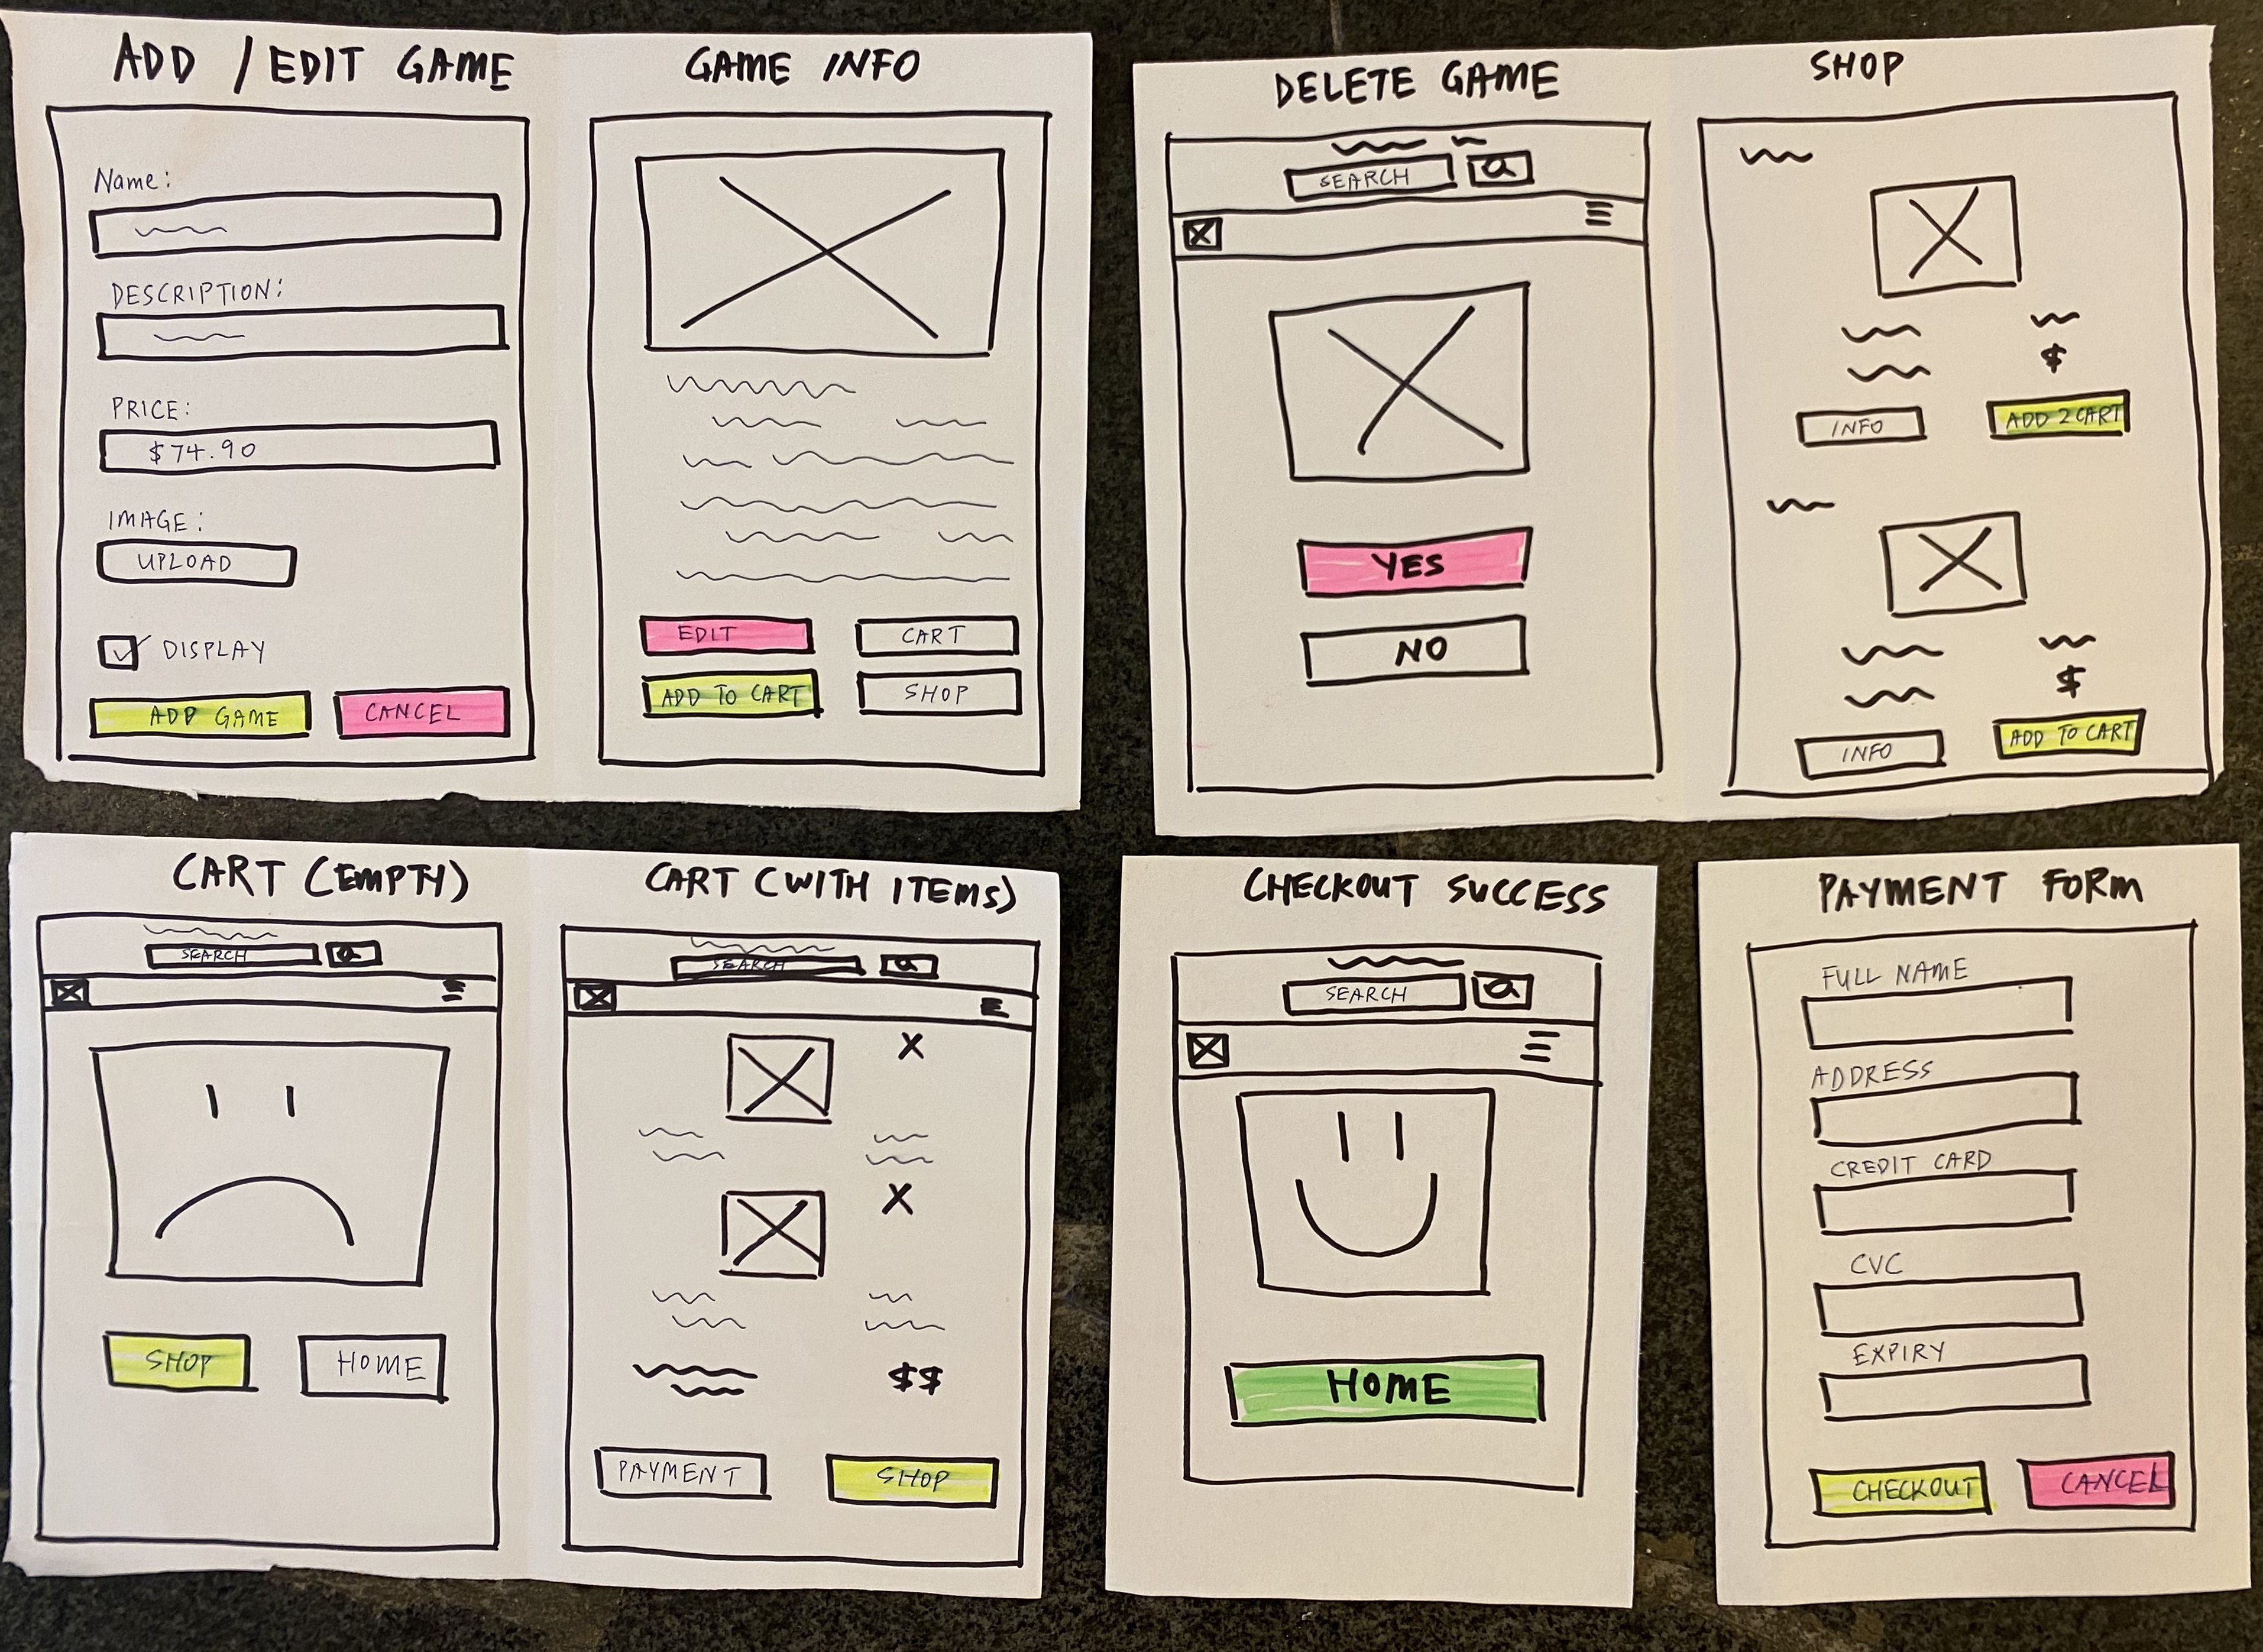 ADD / EDIT GAME
Name:
DESCRIPTION:
PRICE:
$74.90
IMAGE:
UPLOAD
DISPLAY
ADD GAME
CANCEL
GAME INFO
EDIT
CART
ADD TO CART
SHOP
DELETE GAME
SEARCH
YES
NO
SHOP
$
INFO
ADD 2 CART
$
INFO
ADD TO CART
CART (EMPTY)
SEARCH
SHOP
HOME
CART (WITH ITEMS)
SEARCH
X
X
$$
PAYMENT
SHOP
CHECKOUT SUCCESS
SEARCH
HOME
PAYMENT FORM
FULL NAME
ADDRESS
CREDIT CARD
CVC
EXPIRY
CHECKOUT
CANCEL